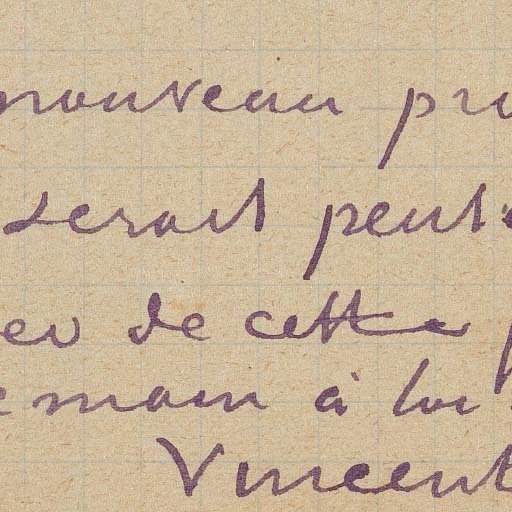 nouveau pri
serait peut-
er de cette
e main à lui
Vincent